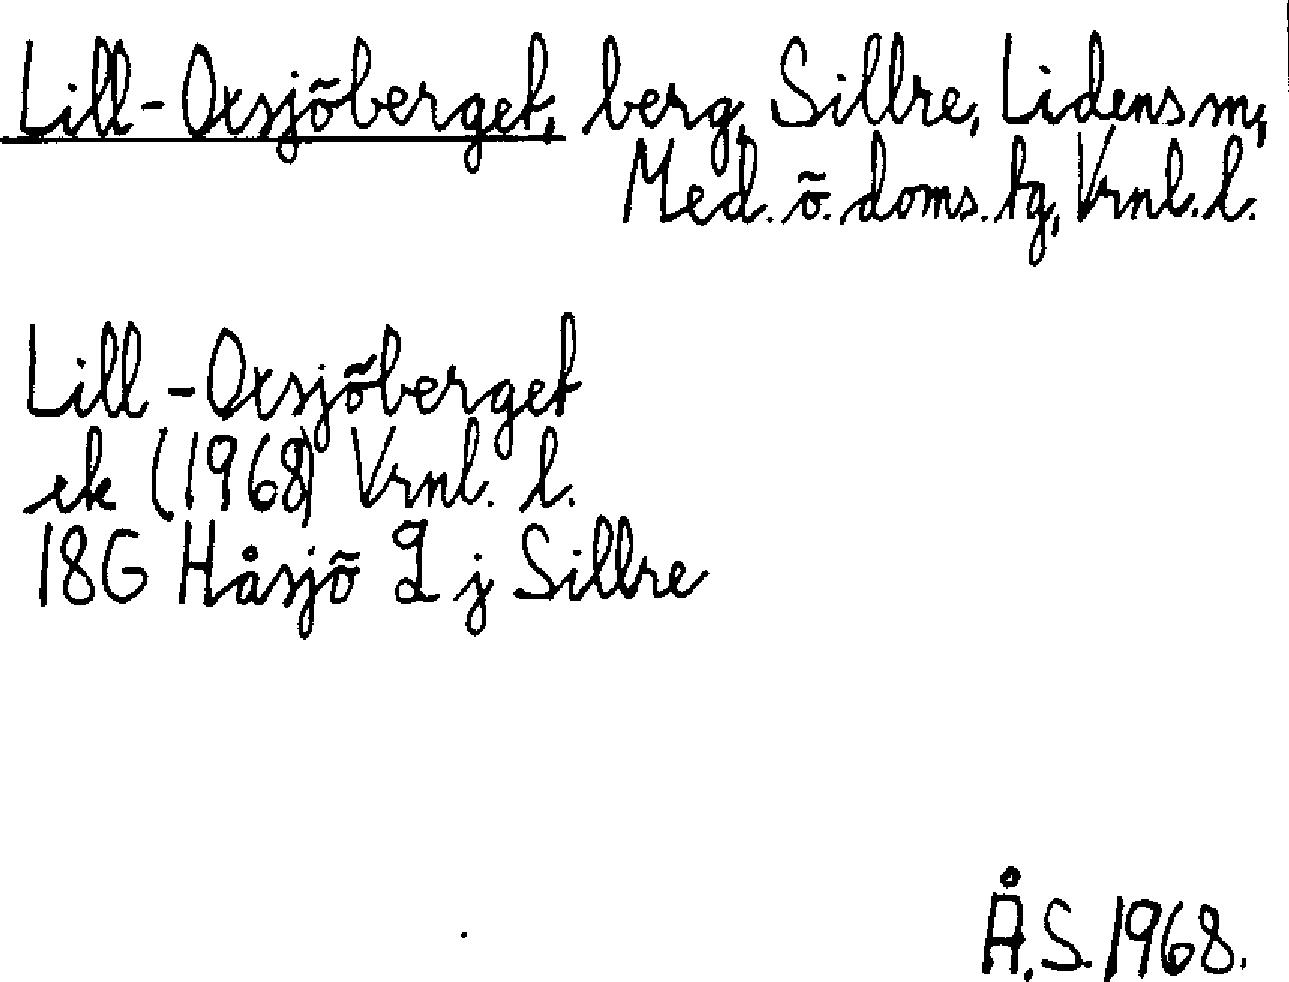 Lill-Oxsjõberget, berg, Sillre, Lidens sn,
Med. õ. doms. tg, Vrnl. l.
Lill-Oxsjõberget
ek (1968) Vrnl. l.
18G Håsjõ 9 j Sillre
Å.S. 1968.